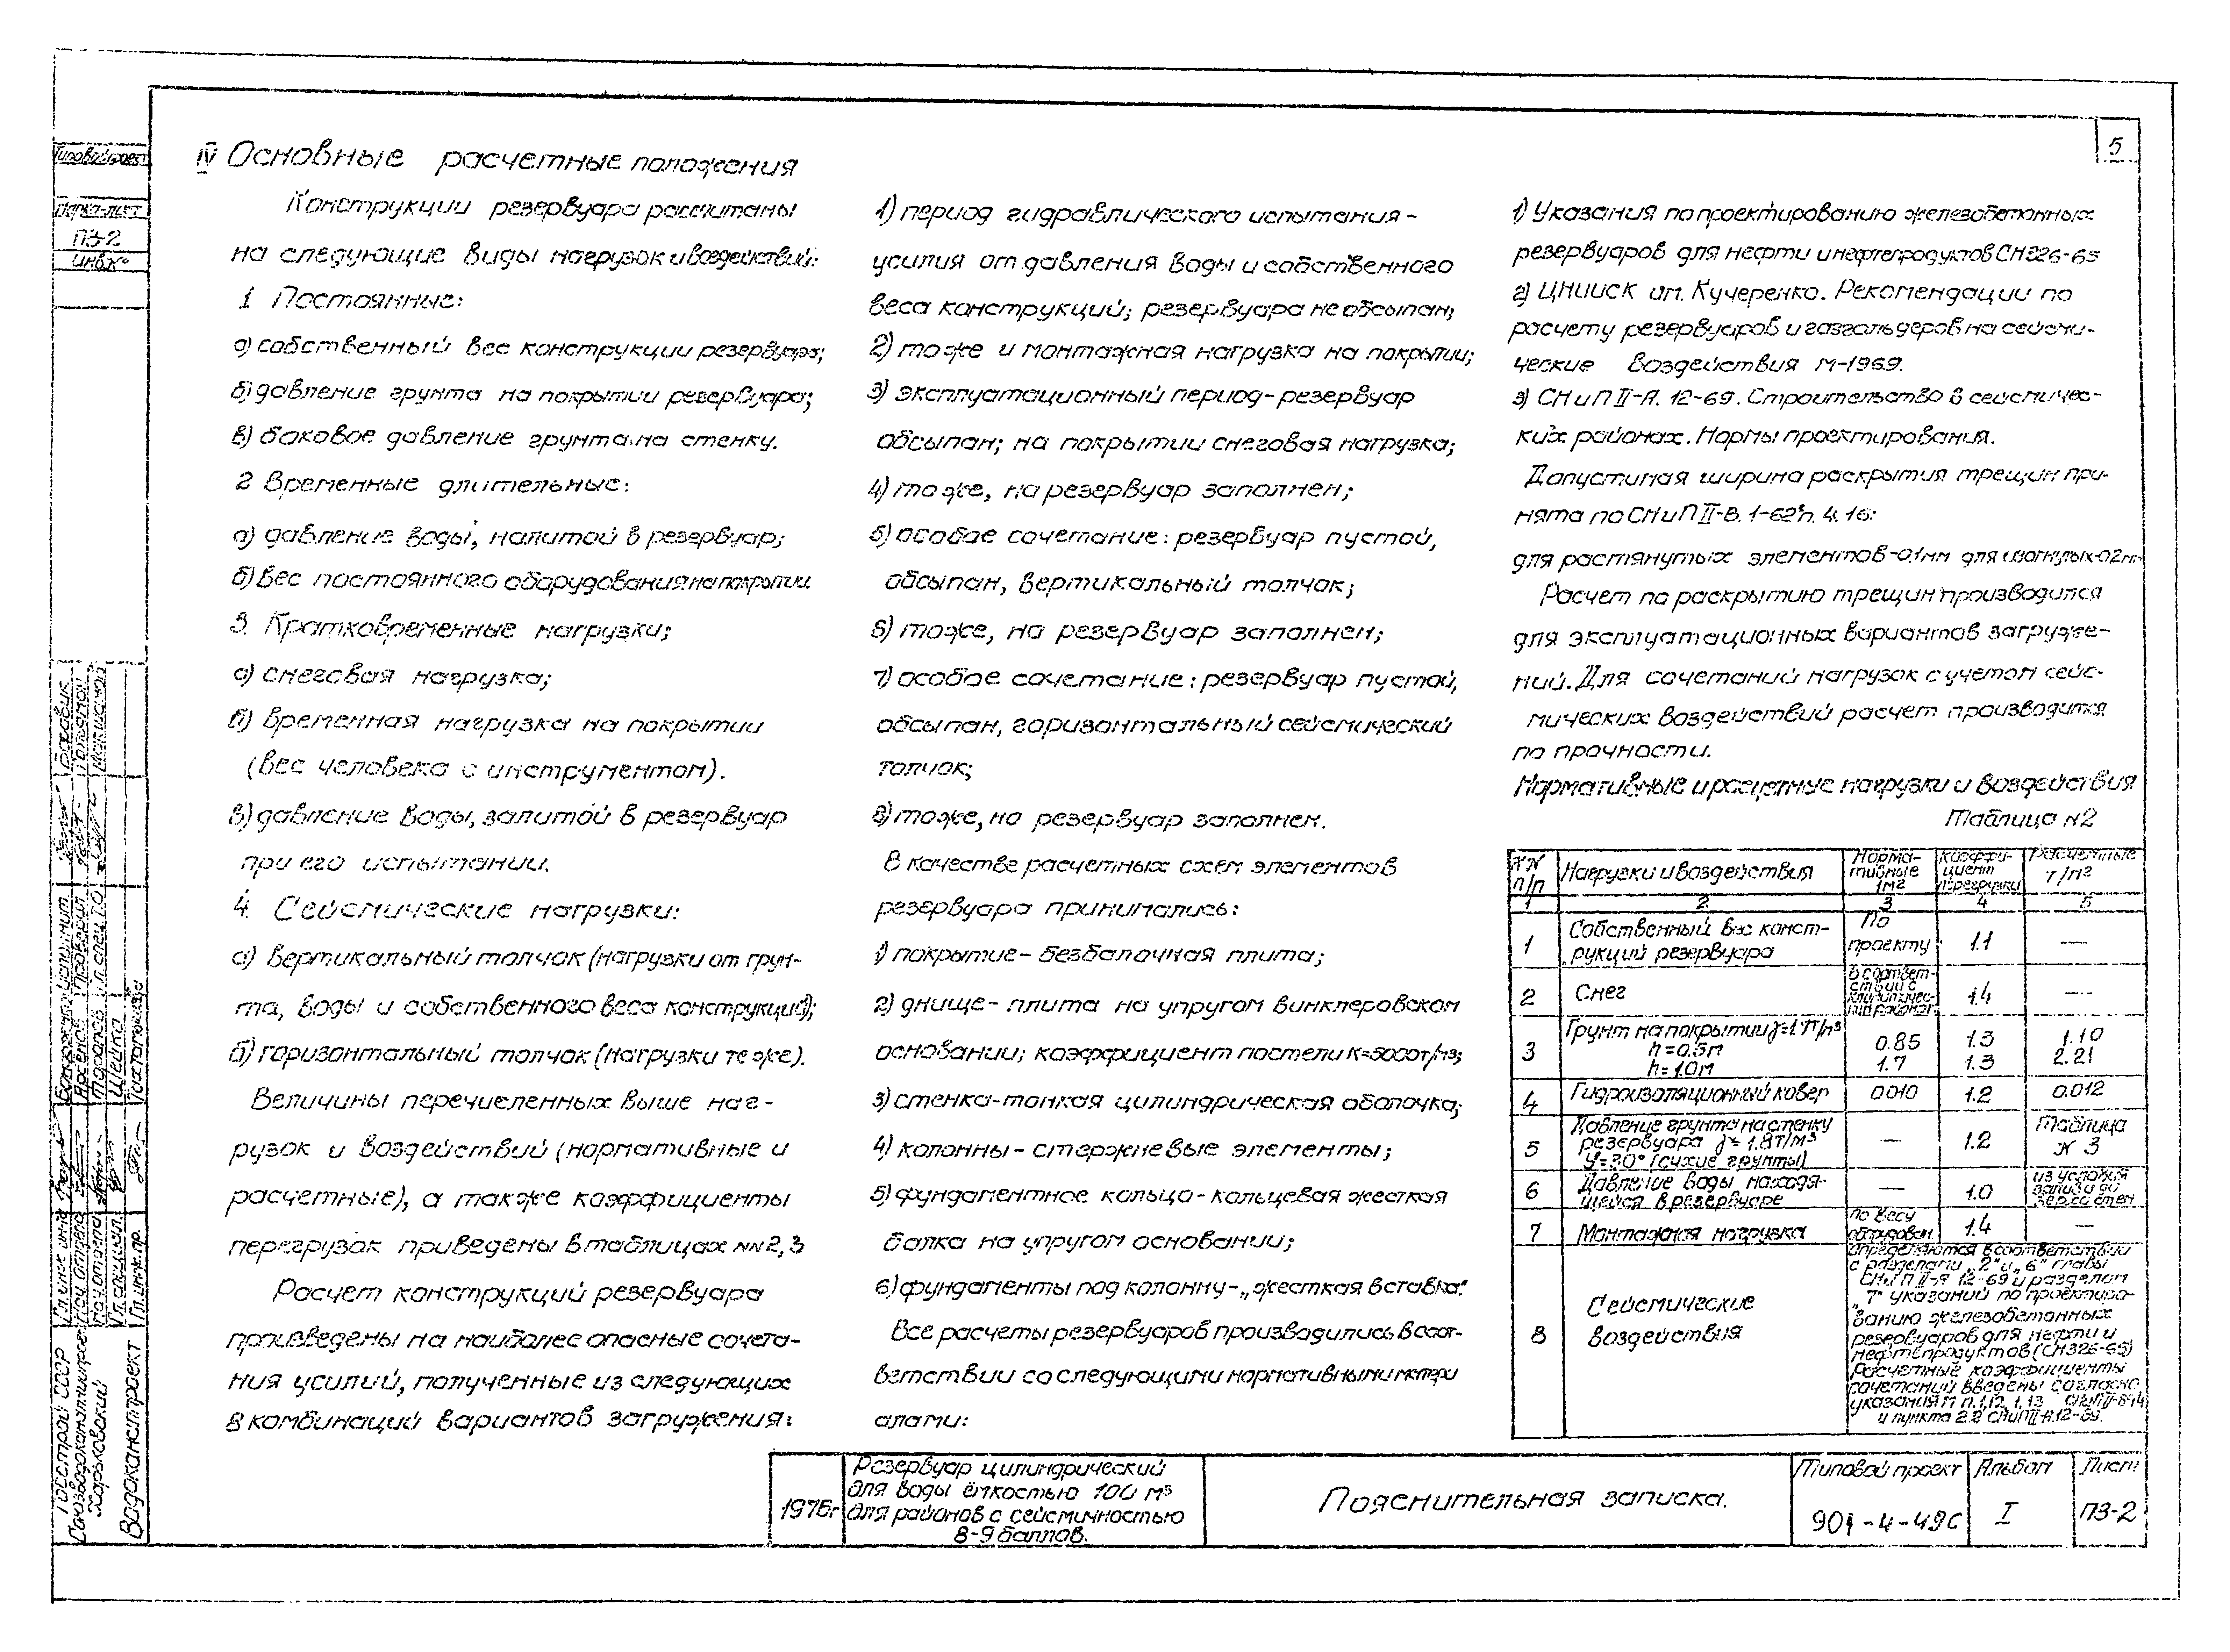 5
IV Основные расчетные положения
Конструкции резервуара рассчитаны
на следующие виды нагрузок и воздействий:
1 Постоянные:
а) собственный вес конструкции резервуара;
б) давление грунта на покрытии резервуара;
в) боковое давление грунта на стенку.
2 Временные длительные:
а) давление воды, налитой в резервуар;
б) вес постоянного оборудования на покрытии.
3. Кратковременные нагрузки;
а) снеговая нагрузка;
б) временная нагрузка на покрытии
(вес человека с инструментом).
в) давление воды, залитой в резервуар
при его испытании.
4. Сейсмические нагрузки:
а) вертикальный толчок (нагрузки от грун-
та, воды и собственного веса конструкций);
б) горизонтальный толчок (нагрузки те же).
Величины перечисленных выше наг-
рузок и воздействий (нормативные и
расчетные), а также коэффициенты
перегрузок приведены в таблицах NN 2, 3
Расчет конструкций резервуара
произведены на наиболее опасные сочета-
ния усилий, полученные из следующих
8 комбинаций вариантов загружения:
1) период гидравлического испытания-
усилия от давления воды и собственного
веса конструкций; резервуара не обсыпан;
2) то же и монтажная нагрузка на покрытии;
3) эксплуатационный период-резервуар
обсыпан; на покрытии снеговая нагрузка;
4) то же, но резервуар заполнен;
5) особое сочетание: резервуар пустой,
обсыпан, вертикальный толчок;
6) то же, но резервуар заполнен;
7) особое сочетание: резервуар пустой,
обсыпан, горизонтальный сейсмический
толчок;
8) то же, но резервуар заполнен.
В качестве расчетных схем элементов
резервуара принимались:
1) покрытие-безбалочная плита;
2) днище-плита на упругом винклеровском
основании; коэффициент постели К=5000т/м3;
3) стенка-тонкая цилиндрическая оболочка;
4) колонны-стержневые элементы;
5) фундаментное кольцо-кольцевая жесткая
балка на упругом основании;
6) фундаменты под колонну-„жесткая вставка".
Все расчеты резервуаров производились в соот-
ветствии со следующими нормативными матери
алами:
1) Указания по проектированию железобетонных
резервуаров для нефти и нефтепродуктов СН326-65
2) ЦНИИСК им. Кучеренко. Рекомендации по
расчету резервуаров и газгольдеров на сейсми-
ческие воздействия М-1969.
3) СНиП II-А. 12-69. Строительство в сейсмичес-
ких районах. Нормы проектирования.
Допустимая ширина раскрытия трещин при-
нята по СНиП II-В. 1-62* п. 4.16:
для растянутых элементов-0.1мм для изогнутых-0.2мм
Расчет по раскрытию трещин производился
для эксплуатационных вариантов загруже-
ний. Для сочетаний нагрузок с учетом сейс-
мических воздействий расчет производится
по прочности.
Нормативные и расчетные нагрузки и воздействия
Таблица N2
NN п/п Нагрузки и воздействия Норма-тивные т/м2 Коэффи-циент перегрузки Расчетные т/м2
1 2 3 4 5
1 Собственный вес конст-рукций резервуара По проекту 1.1 —
2 Снег В соответ-ствии с климатичес-ким районом 1.4 —
3 Грунт на покрытии γ=1.7т/м3 h=0.5м 0.85 1.3 1.10
h=1.0м 1.7 1.3 2.21
4 Гидроизоляционный ковер 0.010 1.2 0.012
5 Давление грунта на стенку резервуара γ=1.8т/м3 φ=30° (сухие грунты) — 1.2 Таблица N 3
6 Давление воды находя-щейся в резервуаре — 1.0 из условия залива до верха стен
7 Монтажная нагрузка по весу оборудован. 1.4 —
8 Сейсмические воздействия
определяются в соответствии
с разделами „2" и „6" главы
СНиП II-А 12-69 и разделом
„7" указаний по проектиро-
ванию железобетонных
резервуаров для нефти и
нефтепродуктов (СН326-65)
Расчетные коэффициенты
сочетаний введены согласно
указаниям п. 1.12, 1.13
и пункта 2.2 СНиП II-А.12-69.
1975г
Резервуар цилиндрический
для воды ёмкостью 100 м3
для районов с сейсмичностью
8-9 баллов.
Пояснительная записка.
Типовой проект
901-4-49С
Альбом
I
Лист
ПЗ-2
Типовой проект
Марка-лист
ПЗ-2
Инв.N°
Госстрой СССР
Союзводоканалниипроект
Харьковский
Водоканалпроект
Гл. инж. инст
Нач. отдела
Нач. отдела
Гл. специал.
Гл. инж. пр.
Шейко